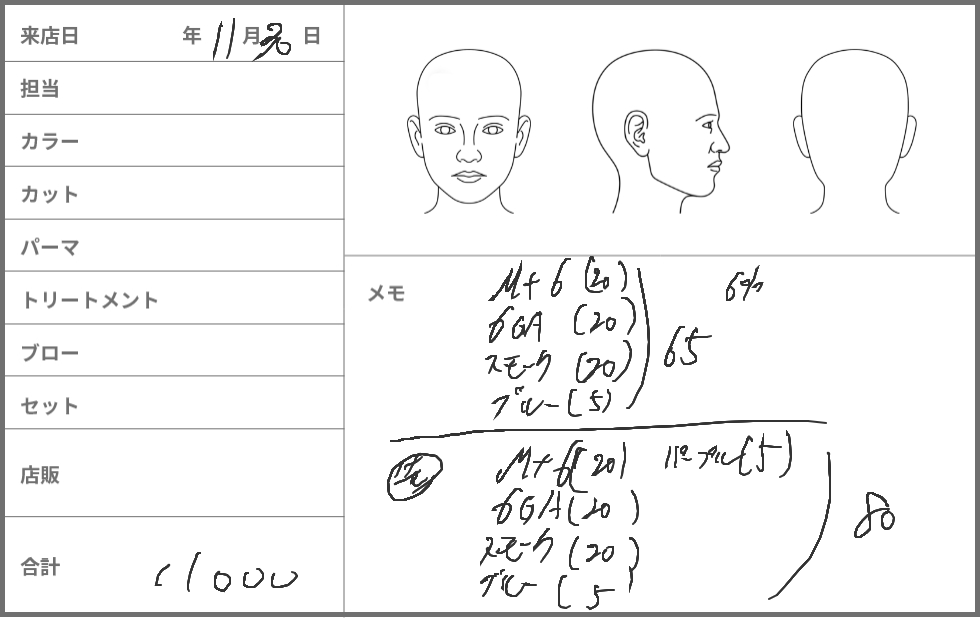 来店日 年 11月 30日
担当
カラー
カット
パーマ
トリートメント
ブロー
セット
店販
合計 11000
メモ
M+6 (20) 6%
6GA (20)
スモーク (20) 65
ブルー (5)
M+6 (20) パープル (5)
6GA (20)
スモーク (20) 80
ブルー (5